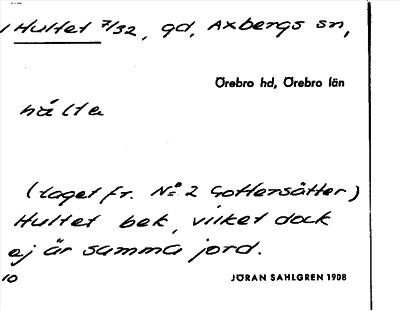 1 Hultet 7/32, gd, Axbergs sn,
Örebro hd, Örebro län
hå̀lta
(taget fr. No 2 Gottersätter)
Hultet bek, vilket dock
ej är samma jord.
10
JÖRAN SAHLGREN 1908